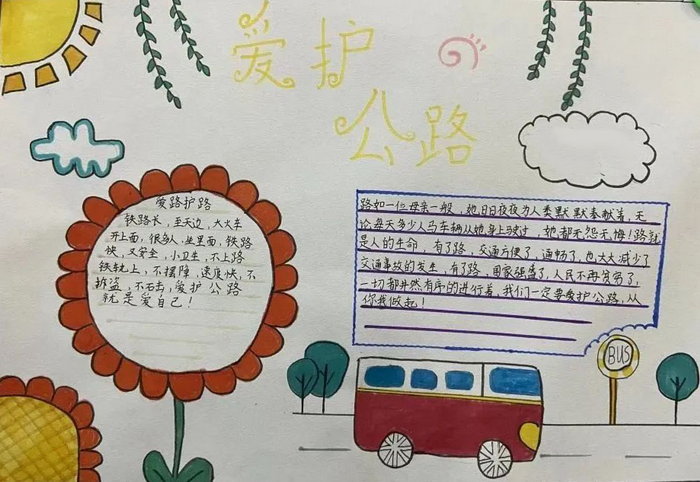 爱护
公路
爱路护路
铁路长,至天边,大火车
开上面,很多人,坐里面,铁路
快,又安全,小卫生,不上路
铁轨上,不摆障,速度快,不
拆盗,不石击,爱护公路
就是爱自己!
路如一位母亲一般,她日日夜夜为人类默默奉献着,无
论每天多少人马车辆从她身上驶过,她都无怨无悔!路就
是人的生命,有了路,交通方便了,通畅了,也大大减少了
交通事故的发生,有了路,国家强盛了,人民不再贫穷了,
一切都井然有序的进行着,我们一定要爱护公路,从
你我做起!
BUS